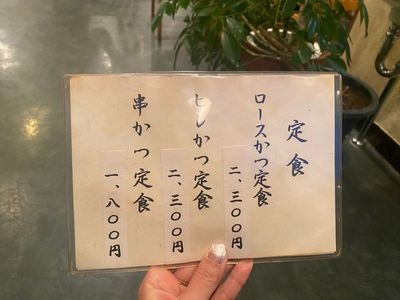 定食
ロースかつ定食
二、三〇〇円
ヒレかつ定食
二、三〇〇円
串かつ定食
一、八〇〇円